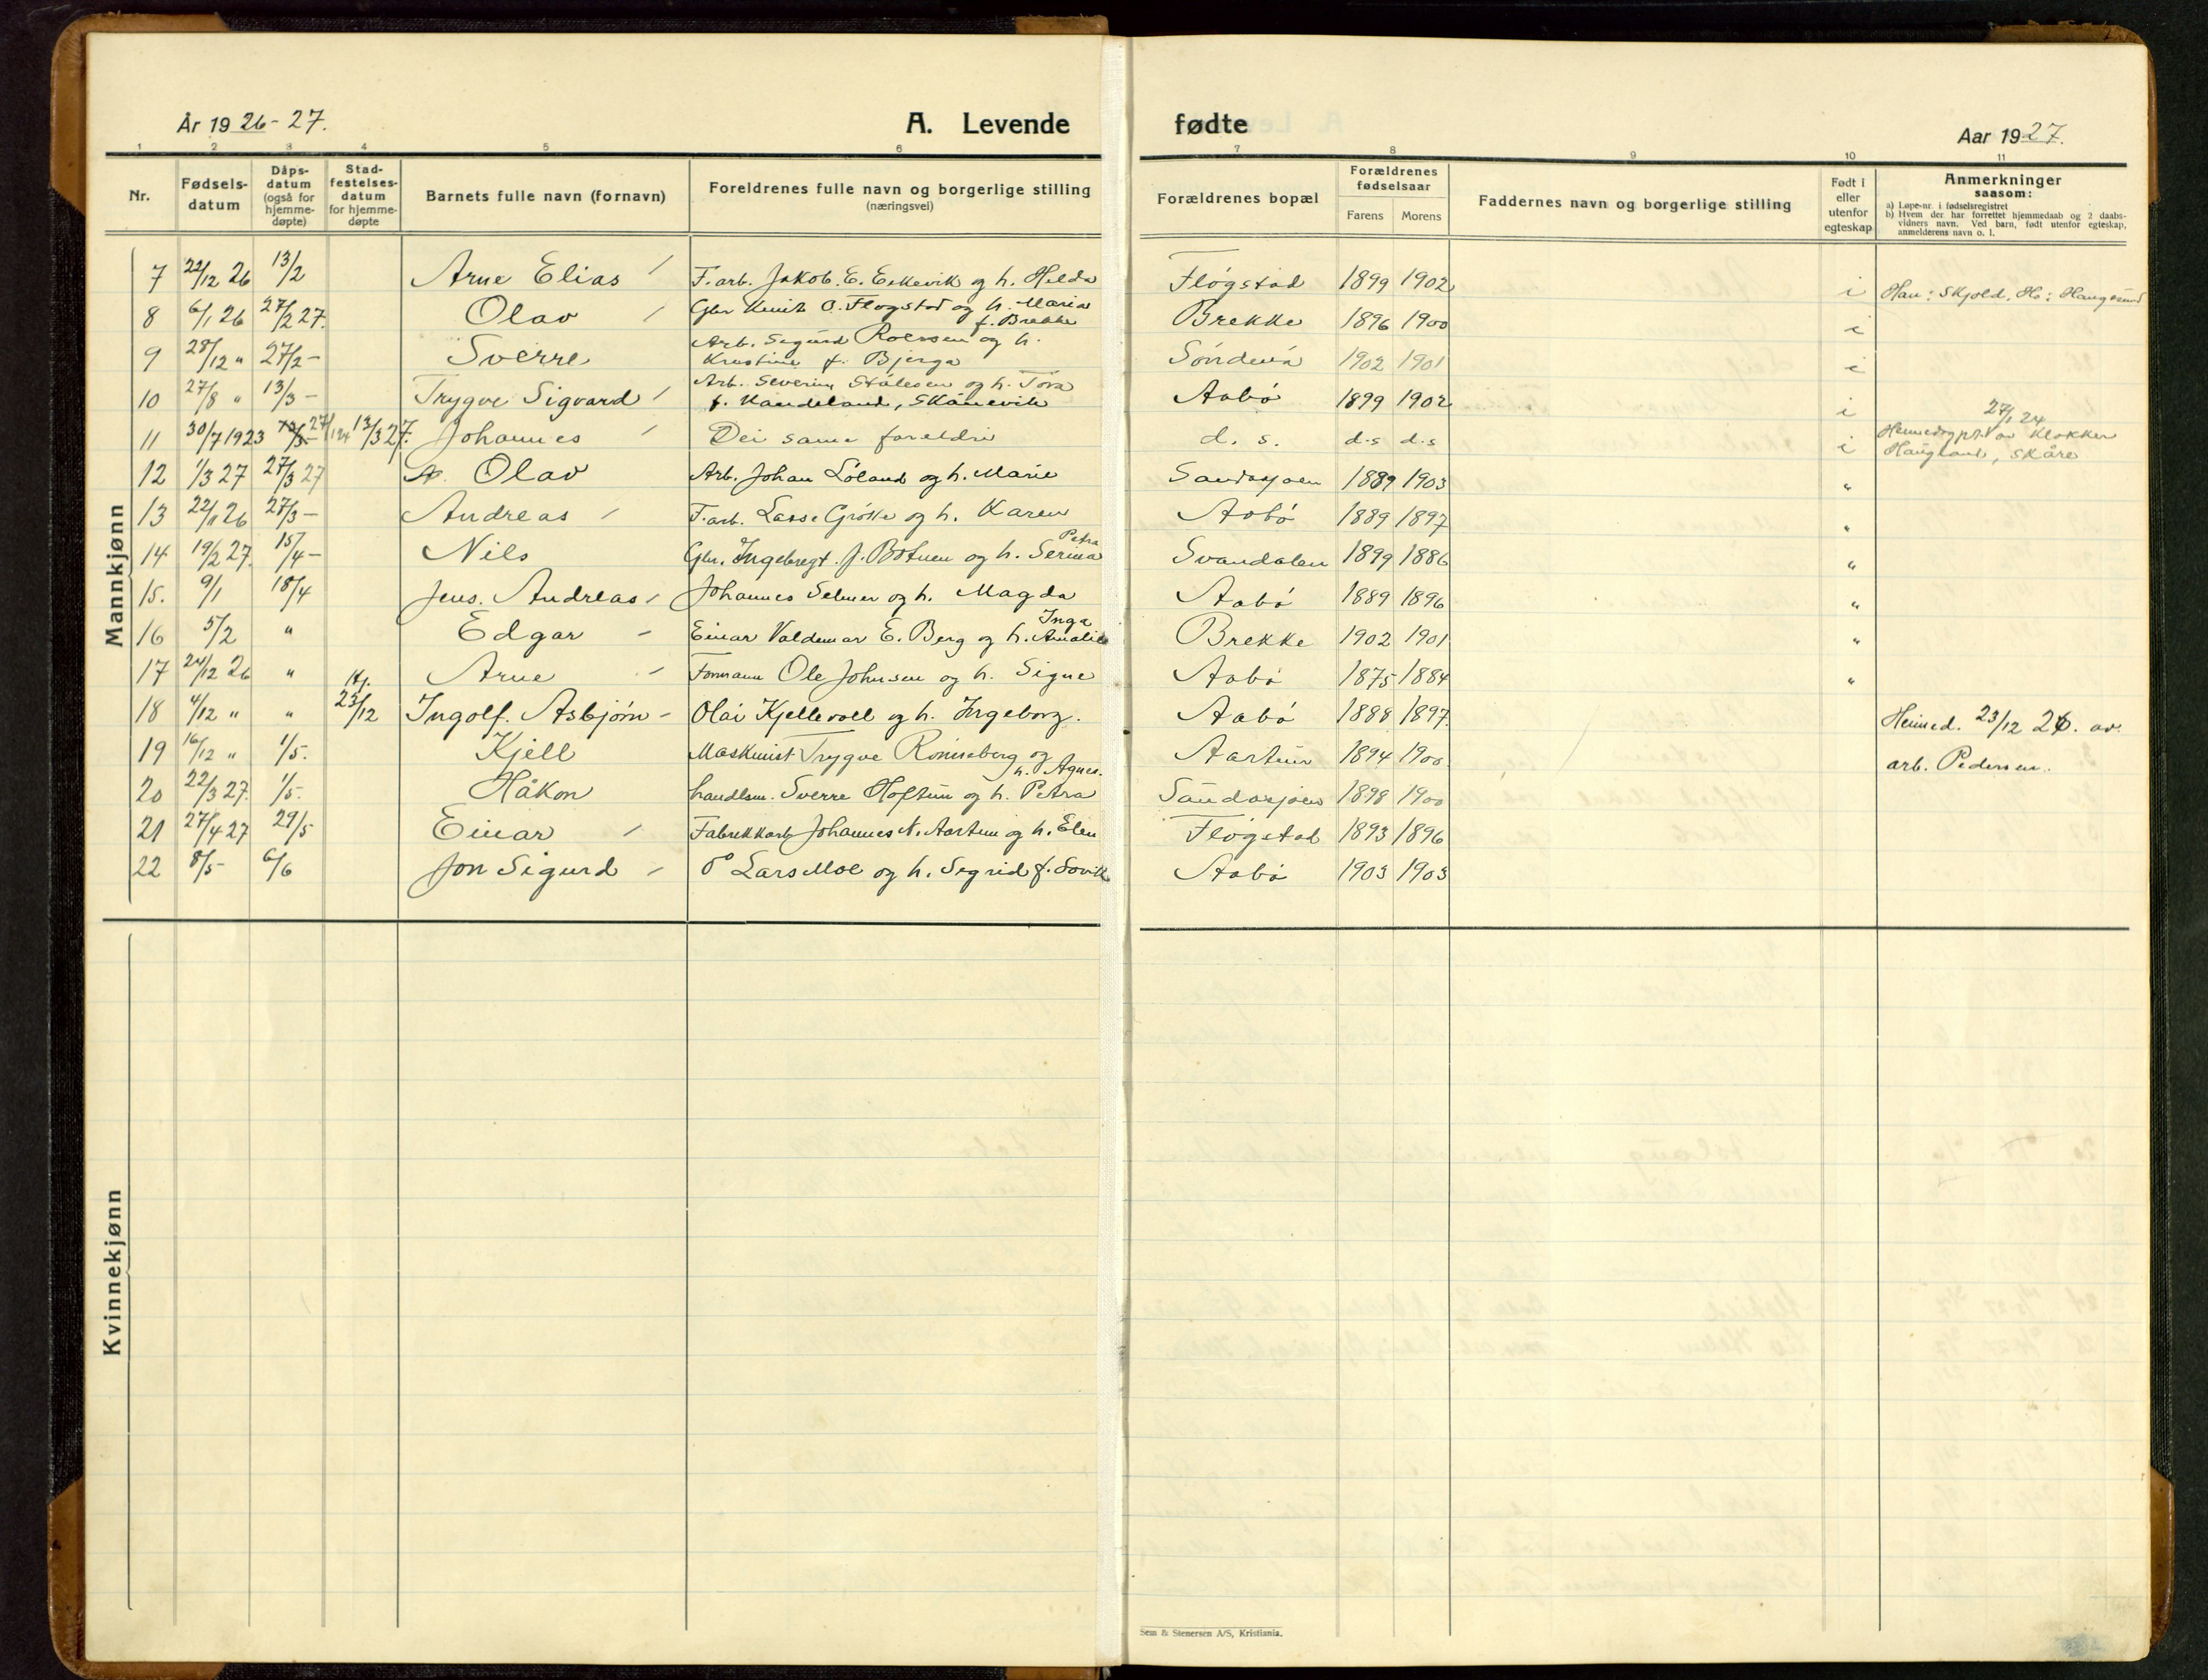 År 1926-27.
A. Levende
fødte
Aar 1927.
1 2 3 4 5 6 7 8 9 10 11
Nr.
Fødsels-
datum
Dåps-
datum
(også for
hjemme-
døpte)
Stad-
festelses-
datum
for hjemme-
døpte
Barnets fulle navn (fornavn)
Foreldrenes fulle navn og borgerlige stilling
(næringsvei)
Forældrenes bopæl
Forældrenes
fødselsaar
Farens Morens
Faddernes navn og borgerlige stilling
Født i
eller
utenfor
egteskap
Anmerkninger
saasom:
a) Løpe-nr. i fødselsregistret
b) Hvem der har forrettet hjemmedaab og 2 daabs-
vidners navn. Ved barn, født utenfor egteskap,
anmelderens navn o. l.
Mannkjønn
7 22/12 26 13/2 Arne Elias / F. arb. Jakob. E. Eikevik og h. Hilda Fløgstad 1899 1902 i Han: Skjold. Ho: Haugesund
8 6/1 26 27/2 27. Olav / Gbr Knut O. Fløgstad og h. Maria f. Brekke Brekke 1896 1900 i
9 28/12 " 27/2 - Sverre Arb. Sigurd og h. Kristine f. Bjerga Søndenå 1902 1901 i
10 27/8 " 13/3 - Trygve Sigvard / Arb. Severin Stålesen og h. Tora f. Kandeland, Skånevik Aabø 1899 1902 i
11 30/7 1923 13/3 27. Johannes / Dei same foreldre d. s. d.s d.s i 27/1 24 Heimedøypt av Klokker Haugland, Skåre
12 1/3 27 27/3 27 Olav Arb. Johan Løland og h. Marie Sandasjøen 1889 1903 "
13 22/11 26 27/3 - Andreas / F. arb. Lasse Grötte og h. Karen Aabø 1889 1897 "
14 19/2 27. 15/4 - Nils Gbr. Ingebregt. J. Botnen og h. Serina Petra Svandalen 1899 1886 "
15. 9/1 18/4 Jens. Andreas / Johannes Selmer og h. Magda Aabø 1889 1896 "
16 5/2 " Edgar - Einar Valdemar E. Berg og h. Inga Amalie Brekke 1902 1901 "
17 24/12 26 " Arne - Formann Ole Johnsen og h. Signe Aabø 1875 1884 "
18 4/12 " " Hj. 23/12 Ingolf. Asbjørn - Olai Kjellevoll og h. Ingeborg. Aabø 1888 1897. Heimed. 23/12 26. av.
19 16/12 " 1/5. Kjell Maskinist Trygve Rønneberg og h. Agnes. Aartun 1894 1900 arb. Pedersen.
20 22/3 27. 1/5. Håkon handlsm. Sverre Hoftun og h. Petra Sandasjøen 1898 1900
21 27/4 27 29/5 Einar / Fabrikkarb Johannes N. Aartun og h. Elen Fløgstad 1893 1896
22 8/5 - 6/6 Jon Sigurd / Lars Moe og h. Sigrid f. Søvik Aabø 1903 1903
Kvinnekjønn
Sem & Stenersen A/S, Kristiania.